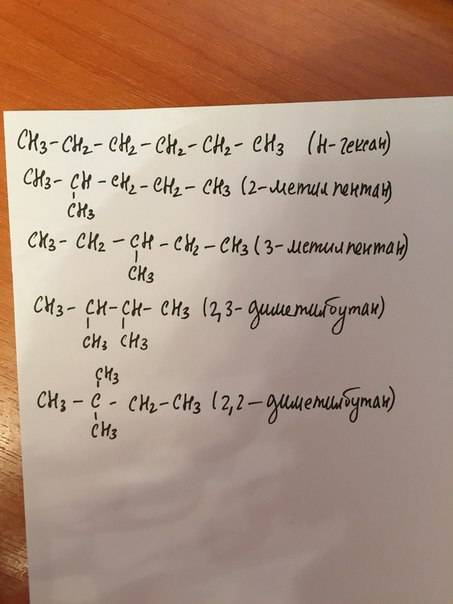 CH3-CH2-CH2-CH2-CH2-CH3 (н-гексан)
CH3-CH-CH2-CH2-CH3 (2-метилпентан)
CH3
CH3-CH2-CH-CH2-CH3 (3-метилпентан)
CH3
CH3-CH-CH-CH3 (2,3-диметилбутан)
CH3 CH3
CH3
CH3-C-CH2-CH3 (2,2-диметилбутан)
CH3